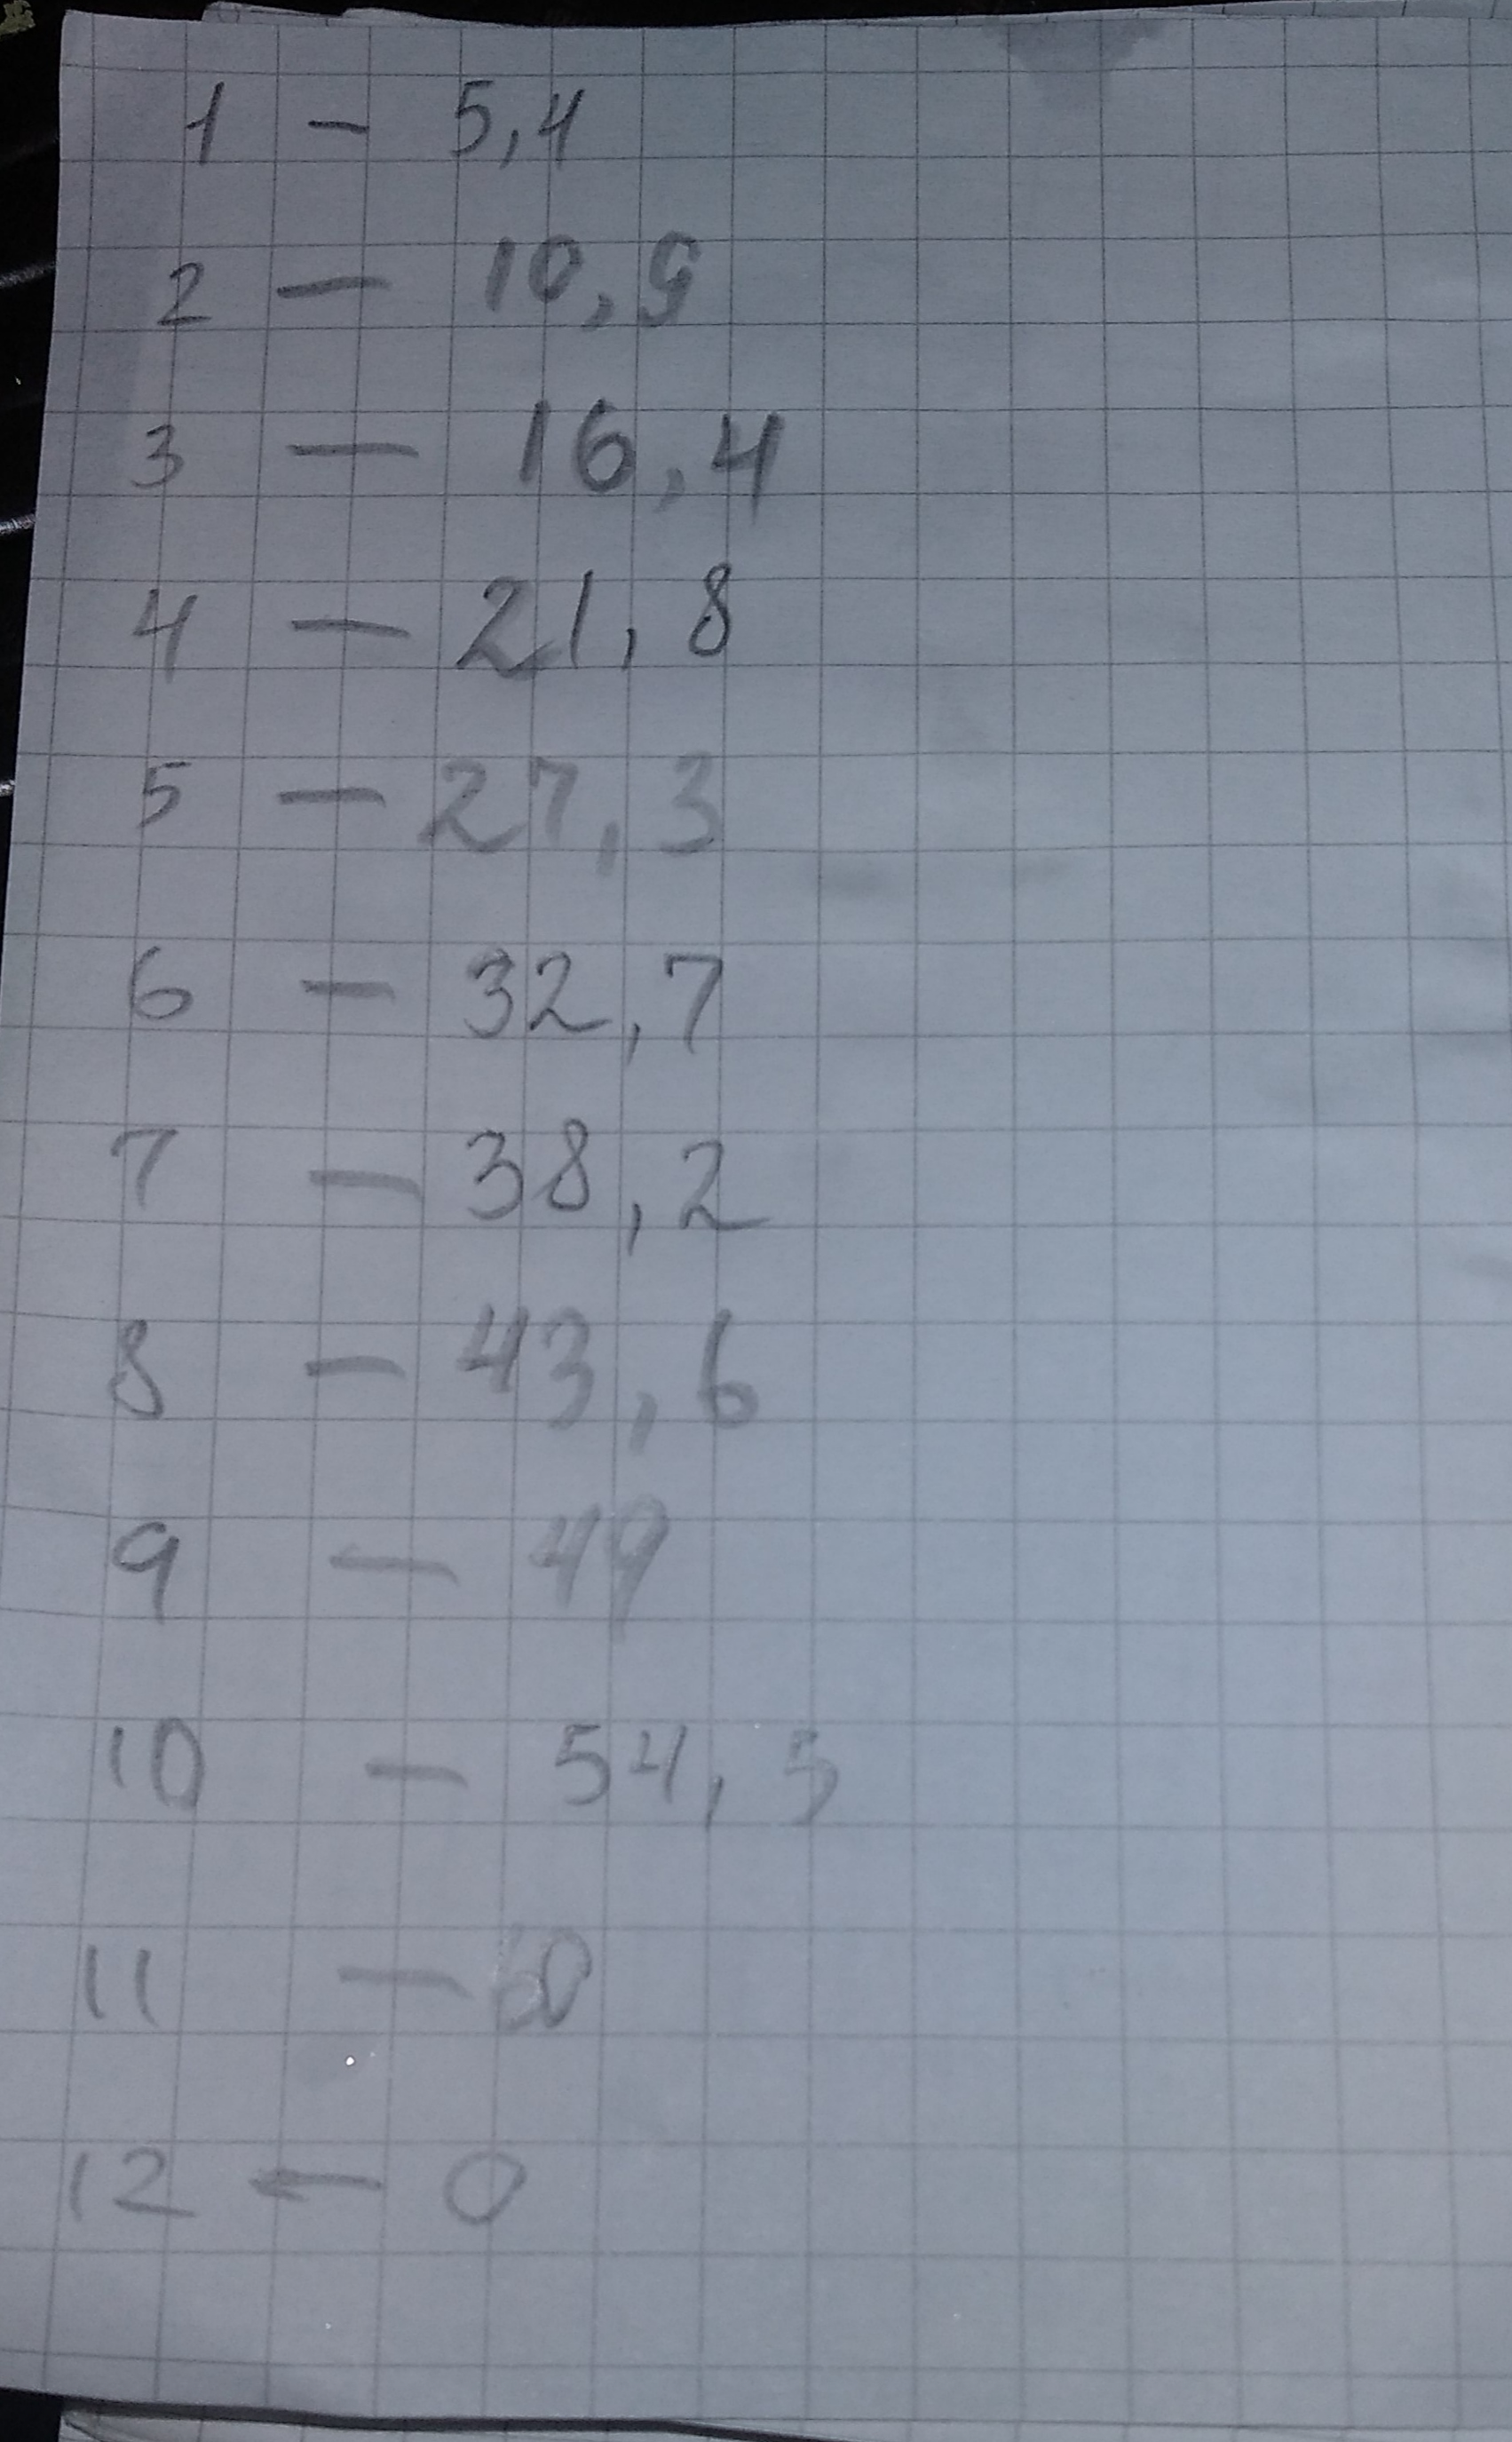 1 - 5,4
2 - 10,9
3 - 16,4
4 - 21,8
5 - 27,3
6 - 32,7
7 - 38,2
8 - 43,6
9 - 49
10 - 54,5
11 - 60
12 - 0